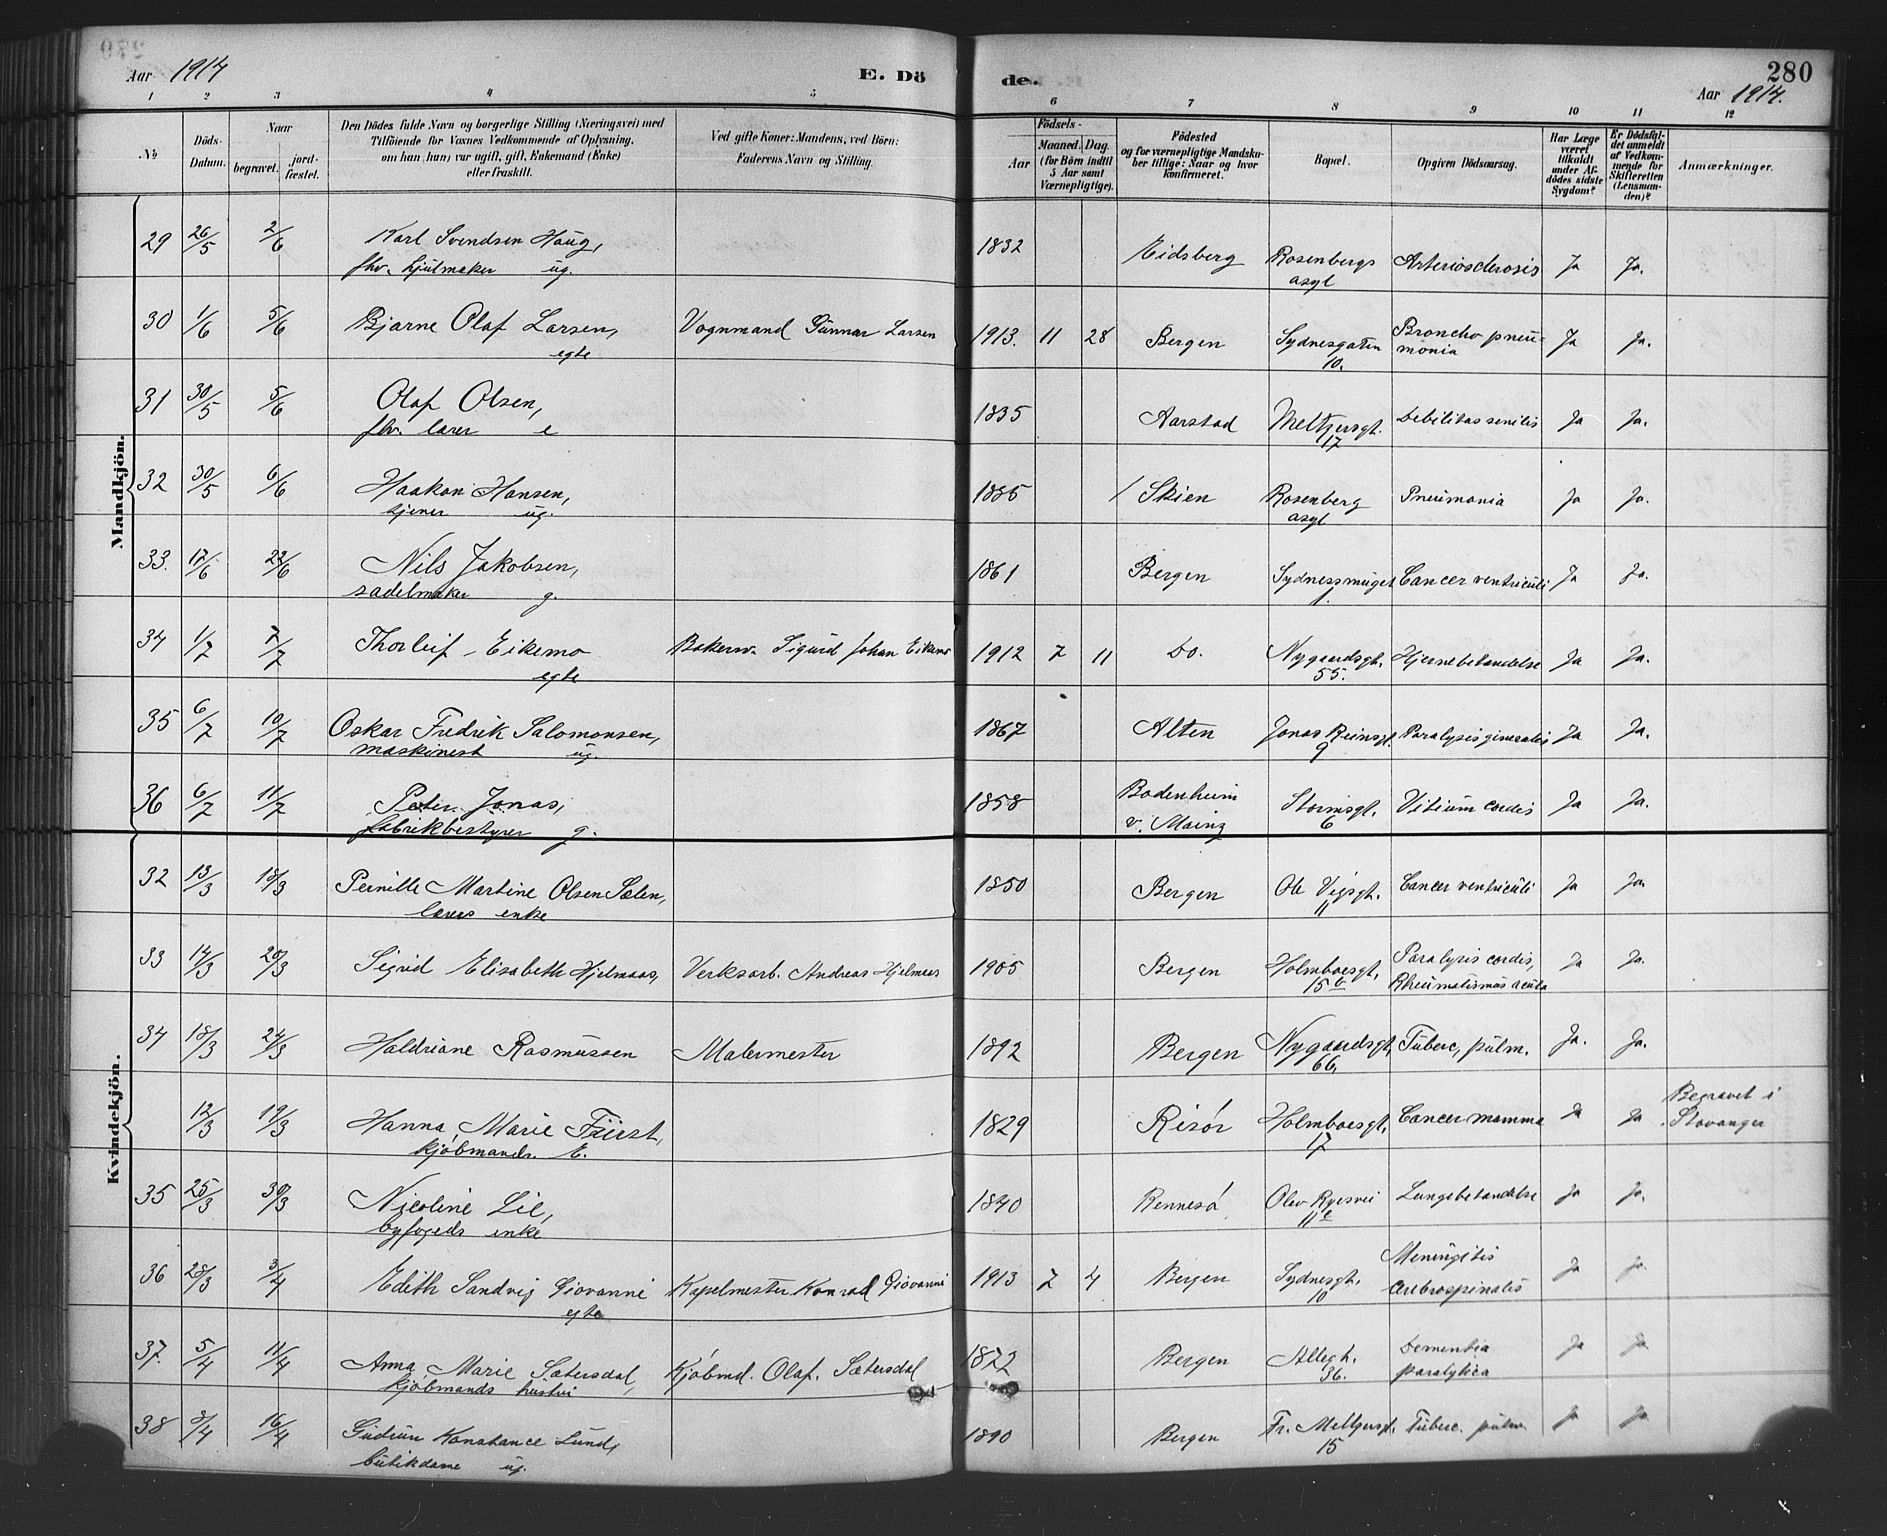 Aar 1914 E. Dö de. 280
Aar 1914.
1 2 3 4 5 6 7 8 9 10 11 12
No Döds-Datum. Naar begravet. jord-fæstet. Den Dödes fulde Navn og borgerlige Stilling (Næringsvei) med Tilföiende for Voxnes Vedkommende af Oplysning, om han (hun) var ugift, gift, Enkemand (Enke) eller fraskilt. Ved gifte Koner: Mandens, ved Börn: Faderens Navn og Stilling. Födsels- Aar Maaned. Dag. (for Börn indtil 5 Aar samt Værnepligtige). Födested og for værnepligtige Mandska-ber tillige: Naar og hvor konfirmeret. Bopæl. Opgiven Dödsaarsag. Har Læge været tilkaldt under Af-dödes sidste Sygdom? Er Dödsfal-det anmeldt af Vedkom-mende for Skifteretten (Lensman-den)? Anmærkninger.
Mandkjön.
29 26/5 2/6 Karl Svendsen Haug, 1832 Eidsberg Rosenbergs Arteriosclerosis Ja Ja.
fhv. hjulmaker ug. asyl
30 1/6 5/6 Bjarne Olaf Larsen, Vognmand Gunnar Larsen 1913. 11 28 Bergen Sydnesgaten Broncho pneu- Ja Ja.
egte 10. monia
31 30/5 5/6 Olaf Olsen, 1835 Aarstad Meltzersgt. Debilitas senilis Ja Ja.
fhv. lærer e 17
32 30/5 6/6 Haakon Hansen, 1885 Skien Rosenberg Pneumonia Ja Ja.
tjener ug. asyl
33. 17/6 22/6 Nils Jakobsen, 1861 Bergen Sydnessmuget Cancer ventriculi Ja Ja.
sadelmaker g. 1.
34 1/7 7/7 Thorleif Eikemo Bakersv. Sigurd Johan Eikemo 1912 7 11 Do. Nygaardsgt. Hjernebetændelse Ja Ja.
egte 55.
35 6/7 10/7 Oskar Fredrik Salomonsen, 1867 Alten Jonas Reinsgt. Paralysis generalis Ja Ja.
maskinist ug. 9
36 6/7 11/7 Peter Jonas, 1858 Bodenheim Stormsgt. Vitium cordis Ja Ja.
fabrikbestyrer g. v. Mainz 6
Kvindekjön.
32 13/3 18/3 Pernille Martine Olsen Sælen, 1850 Bergen Ole Vigsgt. Cancer ventriculi Ja Ja.
lærers enke 11
33 14/3 20/3 Sigrid Elisabeth Hjelmaas, Verksarb. Andreas Hjelmaas 1905 Bergen Holmboesgt. Paralysis cordis, Ja Ja.
15 b Rheumatismus acuta
34 18/3 24/3 Haldriane Rasmussen Malermester 1892 Bergen Nygaardsgt. Tuberc, pulm. Ja. Ja.
66.
12/3 19/3 Hanna Marie Fürst, 1829 Risør Holmboesgt. Cancer mamma Ja Ja Begravet i
kjøbmands. E. 17 Stavanger
35 25/3 30/3 Nicoline Lie, 1840 Rennesö Olav Ryesvei Lungebetændelse Ja Ja.
byfogeds enke 11 c
36 28/3 3/4 Edith Sandvig Giovanni Kapelmester Konrad Giovanni 1913 7 4 Bergen Sydnesgt. Meningitis Ja Ja.
egte 10 cerebrospinalis
37. 5/4 11/4 Anna Marie Sætersdal, Kjøbmd. Olaf. Sætersdal 1872 Bergen Allegt. Dementia Ja Ja.
kjøbmands hustru 36. paralytica
38 8/4 16/4 Gudrun Konstance Lund, 1890 Bergen Fr. Meltzersgt. Tuberc. pulm Ja Ja.
butikdame ug. 15